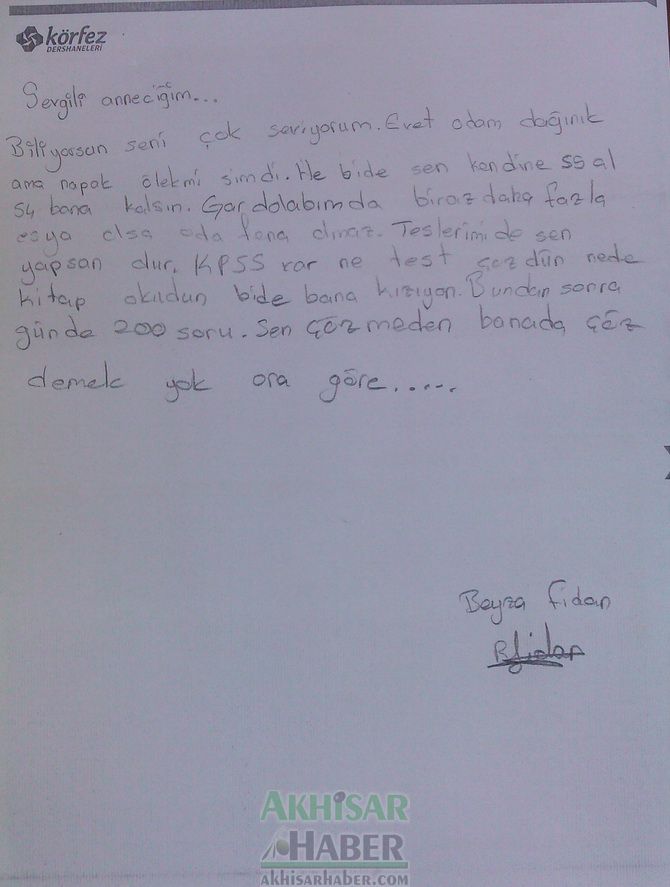 körfez
DERSHANELERİ
Sevgili anneciğim...
Biliyorsun seni çok seviyorum. Evet odam dağınık
ama napak ölekmi simdi. He bide sen kendine 55 al
54 bana kalsın. Gardolabımda biraz daha fazla
esya olsa oda fena olmaz. Teslerimide sen
yapsan dur. KPSS var ne test çözdün nede
kitap okudun bide bana kızıyon. Bundan sonra
günde 200 soru. Sen çözmeden banada çöz
demek yok ora göre......
Beyza Fidan
BFidan
AKHİSAR
HABER
akhisarhaber.com